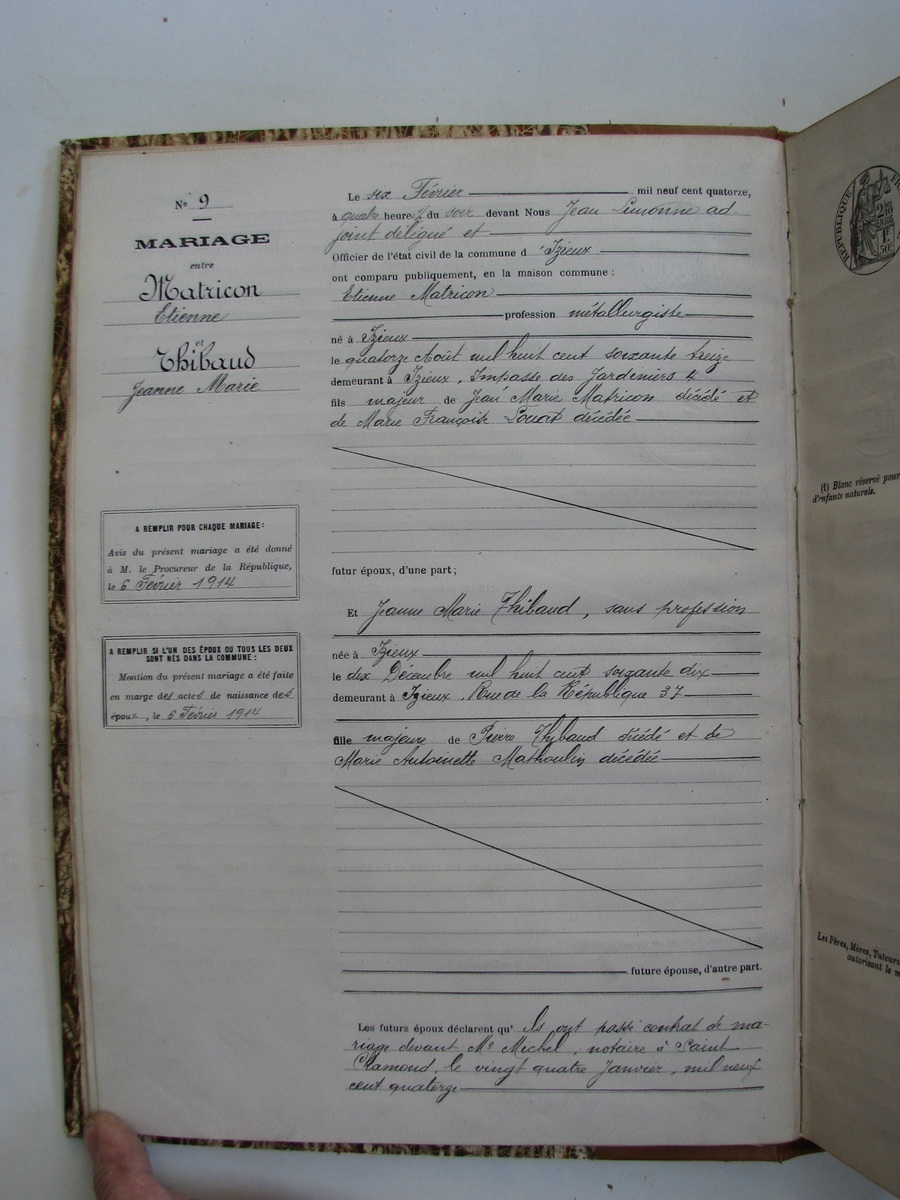 Nº 9
MARIAGE
entre
Matricon
Etienne
et
Thibaud
Jeanne Marie
A REMPLIR POUR CHAQUE MARIAGE :
Avis du présent mariage a été donné
à M. le Procureur de la République,
le 6 Février 1914
A REMPLIR SI L'UN DES ÉPOUX OU TOUS LES DEUX
SONT NÉS DANS LA COMMUNE :
Mention du présent mariage a été faite
en marge des actes de naissance des
époux, le 6 Février 1914
Le six Février mil neuf cent quatorze,
à quatre heures du soir devant Nous Jean Limonne ad-
joint délégué et
Officier de l'état civil de la commune d'Izieux
ont comparu publiquement, en la maison commune :
Etienne Matricon
profession métallurgiste
né à Izieux
le quatorze Août mil huit cent soixante treize
demeurant à Izieux, Impasse des Jardiniers 4
fils majeur de Jean Marie Matricon décédé et
de Marie Françoise Louat décédée
futur époux, d'une part ;
Et Jeanne Marie Thibaud, sans profession
née à Izieux
le dix Décembre mil huit cent soixante dix
demeurant à Izieux, Rue de la République 37
fille majeure de Pierre Thibaud décédé et de
Marie Antoinette Mathoulin décédée
future épouse, d'autre part.
Les futurs époux déclarent qu'ils ont passé contrat de ma-
riage devant Me Michel, notaire à Saint
Chamond, le vingt quatre Janvier, mil neuf
cent quatorze
RÉPUBLIQUE
(1) Blanc réservé pour
d'enfants naturels.
Les Pères, Mères, Tuteurs
autorisant le m